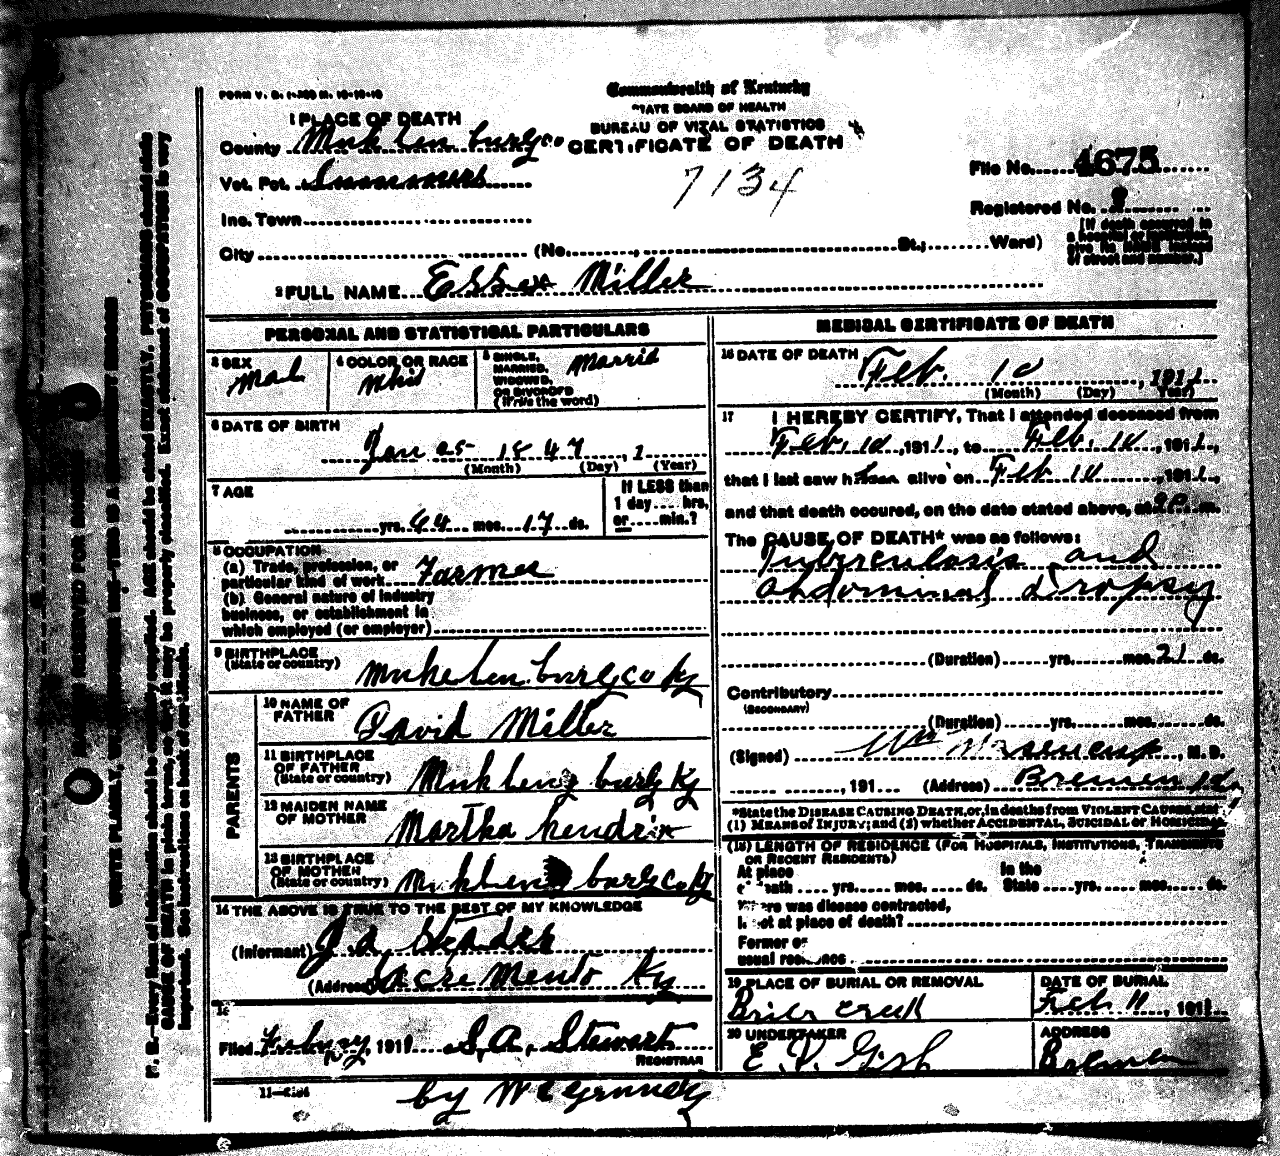 FORM V. S. 1-
Commonwealth of Kentucky
STATE BOARD OF HEALTH
BUREAU OF VITAL STATISTICS
CERTIFICATE OF DEATH
7134
1 PLACE OF DEATH
County Muhlenburg co
Vot. Pct.
Inc. Town
City (No. St.; Ward)
File No. 4675
Registered No. 8
[If death occurred in
a hospital or institution,
give its NAME instead
of street and number.]
2 FULL NAME Essex Miller
PERSONAL AND STATISTICAL PARTICULARS
3 SEX
Mal
4 COLOR OR RACE
Whit
5 SINGLE,
MARRIED,
WIDOWED,
OR DIVORCED
(Write the word)
Marrid
6 DATE OF BIRTH
Jan 25 1847, 1
(Month) (Day) (Year)
7 AGE
yrs. 64 mos. 17 ds.
If LESS than
1 day.... hrs.
or.....min.?
8 OCCUPATION
(a) Trade, profession, or
particular kind of work Farmer
(b) General nature of industry
business, or establishment in
which employed (or employer)
9 BIRTHPLACE
(State or country)
Muhlenburg co Ky
PARENTS
10 NAME OF
FATHER
David Miller
11 BIRTHPLACE
OF FATHER
(State or country)
Muhlenburg Ky
12 MAIDEN NAME
OF MOTHER
Martha Hendrix
13 BIRTHPLACE
OF MOTHER
(State or country)
Muhlenburg co Ky
14 THE ABOVE IS TRUE TO THE BEST OF MY KNOWLEDGE
(Informant) J. A.
(Address) Sacremento Ky
15
Filed 191 S. A. Stewart
REGISTRAR
by W
MEDICAL CERTIFICATE OF DEATH
16 DATE OF DEATH
Feb. 10, 1911
(Month) (Day) Year)
17 I HEREBY CERTIFY, That I attended deceased from
Feb. 10, 1911, to Feb. 10, 1911,
that I last saw h alive on Feb 10, 1911,
and that death occured, on the date stated above, at m.
The CAUSE OF DEATH* was as follows:
Tuberculosis and
abdominal dropsy
(Duration) yrs. mos. 21 ds.
Contributory
(SECONDARY)
(Duration) yrs. mos. ds.
(Signed) Wm , M. D.
, 191 (Address) Bremen
*State the DISEASE CAUSING DEATH, or, in deaths from VIOLENT CAUSES, state
(1) MEANS of INJURY; and (2) whether ACCIDENTAL, SUICIDAL or HOMICIDAL
(18) LENGTH OF RESIDENCE (FOR HOSPITALS, INSTITUTIONS, TRANSIENTS
OR RECENT RESIDENTS)
At place In the
of death.... yrs. mos. ds. State yrs. mos. ds.
Where was disease contracted,
if not at place of death?
Former or
usual residence
19 PLACE OF BURIAL OR REMOVAL
Brier creek
DATE OF BURIAL
Feb 11, 191
20 UNDERTAKER
E. V. Gish
ADDRESS
Bremen
N. B.—Every item of information should be carefully supplied. AGE should be stated EXACTLY. PHYSICIANS should state
CAUSE OF DEATH in plain terms, so that it may be properly classified. Exact statement of OCCUPATION is very
important. See instructions on back of certificate.